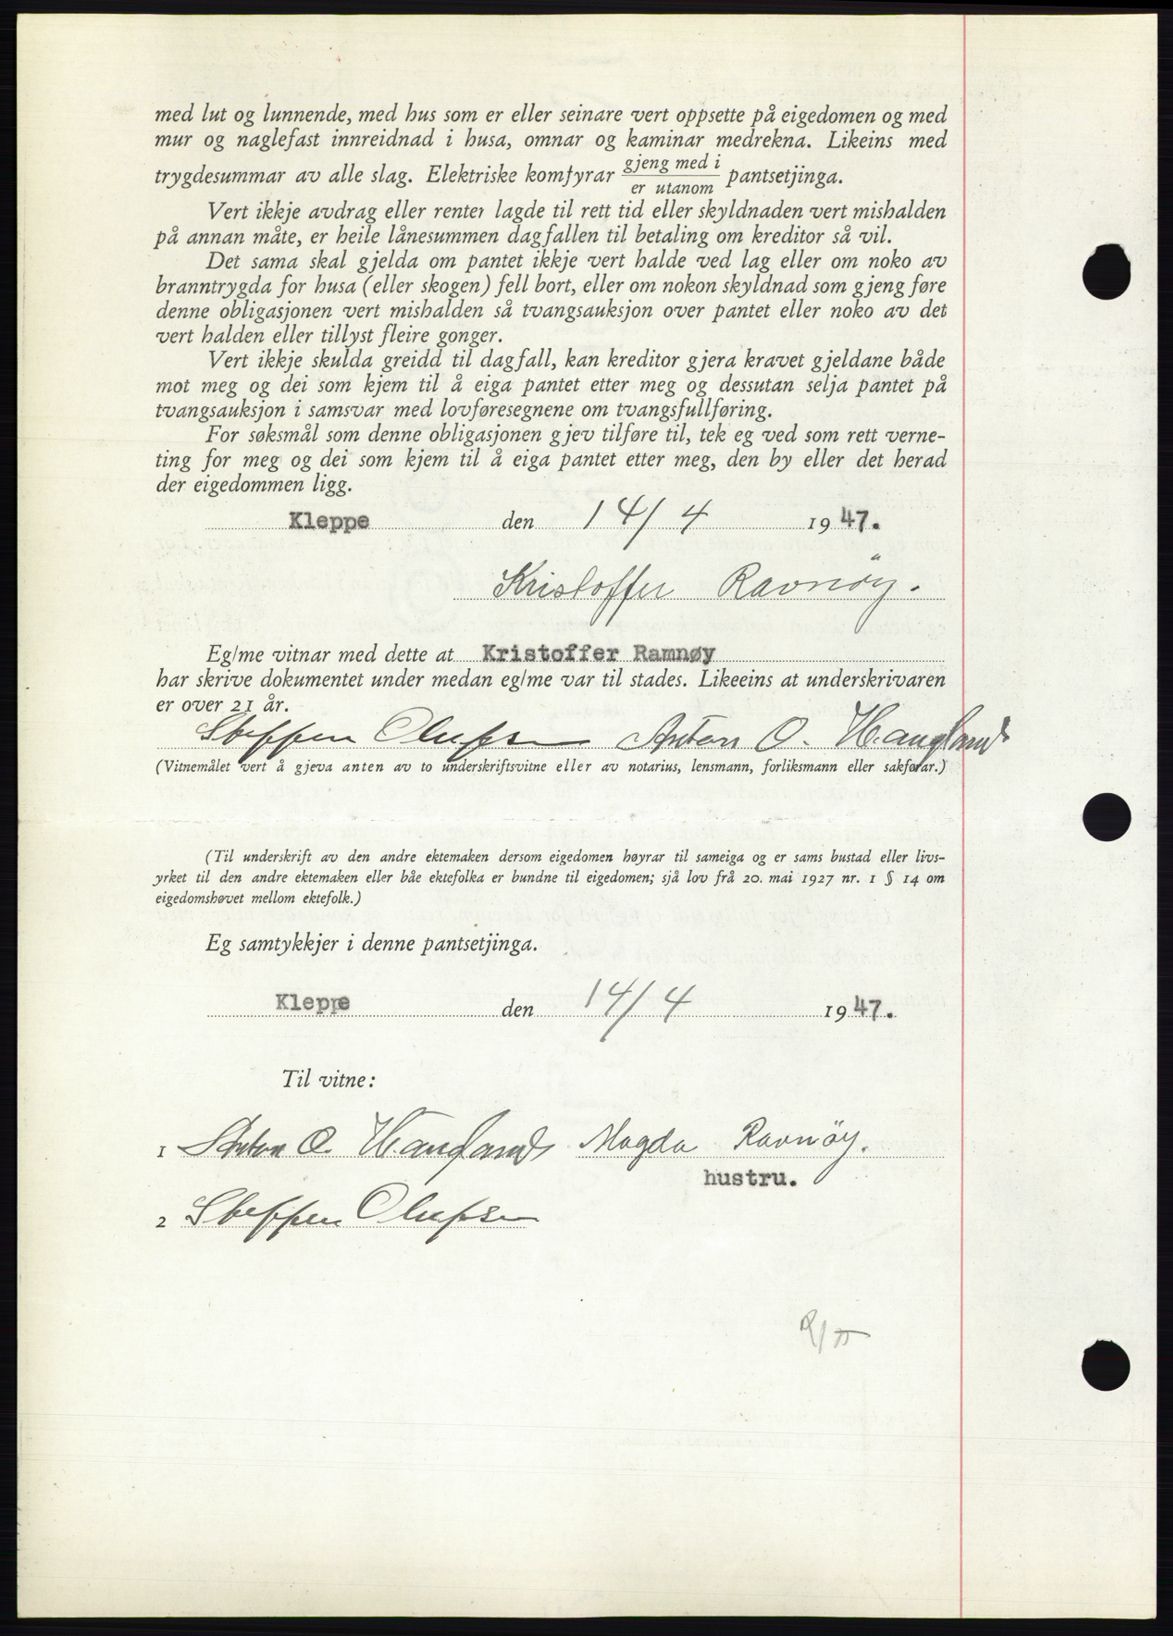 med lut og lunnende, med hus som er eller seinare vert oppsette på eigedomen og med
mur og naglefast innreidnad i husa, omnar og kaminar medrekna. Likeins med
trygdesummar av alle slag. Elektriske komfyrar gjeng med i / er utanom pantsetjinga.
Vert ikkje avdrag eller renter lagde til rett tid eller skyldnaden vert mishalden
på annan måte, er heile lånesummen dagfallen til betaling om kreditor så vil.
Det sama skal gjelda om pantet ikkje vert halde ved lag eller om noko av
branntrygda for husa (eller skogen) fell bort, eller om nokon skyldnad som gjeng føre
denne obligasjonen vert mishalden så tvangsauksjon over pantet eller noko av det
vert halden eller tillyst fleire gonger.
Vert ikkje skulda greidd til dagfall, kan kreditor gjera kravet gjeldane både
mot meg og dei som kjem til å eiga pantet etter meg og dessutan selja pantet på
tvangsauksjon i samsvar med lovføresegnene om tvangsfullføring.
For søksmål som denne obligasjonen gjev tilføre til, tek eg ved som rett verne-
ting for meg og dei som kjem til å eiga pantet etter meg, den by eller det herad
der eigedommen ligg.
Kleppe den 14/4 1947.
Kristoffer Ravnøy.
Eg/me vitnar med dette at Kristoffer Ramnøy
har skrive dokumentet under medan eg/me var til stades. Likeeins at underskrivaren
er over 21 år.
Steffen Olufsen Anton O. Haugland
(Vitnemålet vert å gjeva anten av to underskriftsvitne eller av notarius, lensmann, forliksmann eller sakførar.)
(Til underskrift av den andre ektemaken dersom eigedomen høyrar til sameiga og er sams bustad eller livs-
yrket til den andre ektemaken eller båe ektefolka er bundne til eigedomen; sjå lov frå 20. mai 1927 nr. 1 § 14 om
eigedomshøvet mellom ektefolk.)
Eg samtykkjer i denne pantsetjinga.
Kleppe den 14/4 1947.
Til vitne:
1 Anton O. Haugland Magda Ravnøy.
hustru.
2 Steffen Olufsen